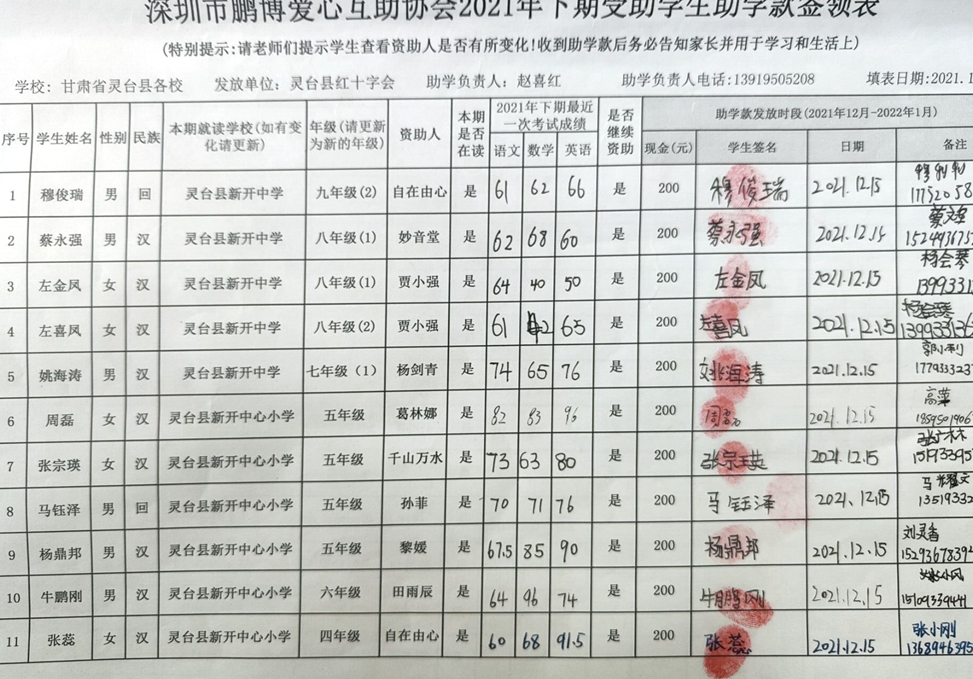 深圳市鹏博爱心互助协会2021年下期受助学生助学款签领表
(特别提示:请老师们提示学生查看资助人是否有所变化!收到助学款后务必告知家长并用于学习和生活上)
学校: 甘肃省灵台县各校 发放单位: 灵台县红十字会 助学负责人: 赵喜红 助学负责人电话:13919505208 填表日期:2021.1
序号 学生姓名 性别 民族 本期就读学校(如有变化请更新) 年级(请更新为新的年级) 资助人 本期是否在读 2021年下期最近一次考试成绩 语文 数学 英语 是否继续资助 助学款发放时段(2021年12月-2022年1月) 现金(元) 学生签名 日期 备注
1 穆俊瑞 男 回 灵台县新开中学 九年级(2) 自在由心 是 61 62 66 是 200 穆俊瑞 2021.12.15
2 蔡永强 男 汉 灵台县新开中学 八年级(1) 妙音堂 是 62 68 60 是 200 蔡永强 2021.12.15
3 左金凤 女 汉 灵台县新开中学 八年级(1) 贾小强 是 64 40 50 是 200 左金凤 2021.12.15 杨会琴 139933
4 左喜凤 女 汉 灵台县新开中学 八年级(2) 贾小强 是 61 42 65 是 200 左喜凤 2021.12.15
5 姚海涛 男 汉 灵台县新开中学 七年级（1） 杨剑青 是 74 65 76 是 200 姚海涛 2021.12.15 177933323
6 周磊 女 汉 灵台县新开中心小学 五年级 葛林娜 是 82 83 96 是 200 周磊 2021.12.15 高萍
7 张宗瑛 女 汉 灵台县新开中心小学 五年级 千山万水 是 73 63 80 是 200 张宗瑛 2021.12.15
8 马钰泽 男 回 灵台县新开中心小学 五年级 孙菲 是 70 71 76 是 200 马钰泽 2021.12.15 13519332
9 杨鼎邦 男 汉 灵台县新开中心小学 五年级 黎媛 是 67.5 85 90 是 200 杨鼎邦 2021.12.15 刘灵香 1529367839
10 牛鹏刚 男 汉 灵台县新开中心小学 六年级 田雨辰 是 64 96 74 是 200 牛鹏刚 2021.12.15 15109339441
11 张蕊 女 汉 灵台县新开中心小学 四年级 自在由心 是 60 68 91.5 是 200 张蕊 2021.12.15 张小刚 1368946395